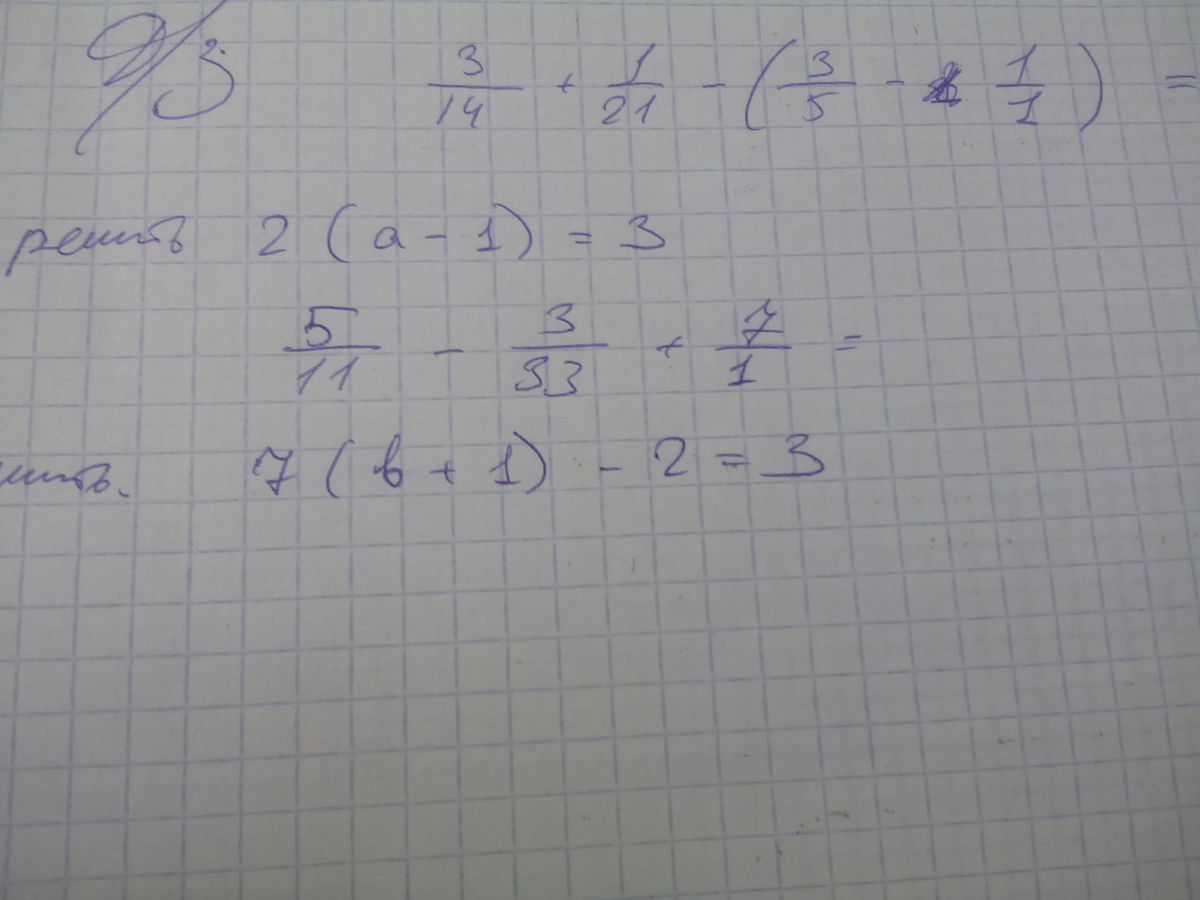 ДЗ 3/14 + 1/21 - (3/5 - 1/1) =
решить 2 (a - 1) = 3
5/11 - 3/33 + 7/1 =
шить. 7 (в + 1) - 2 = 3